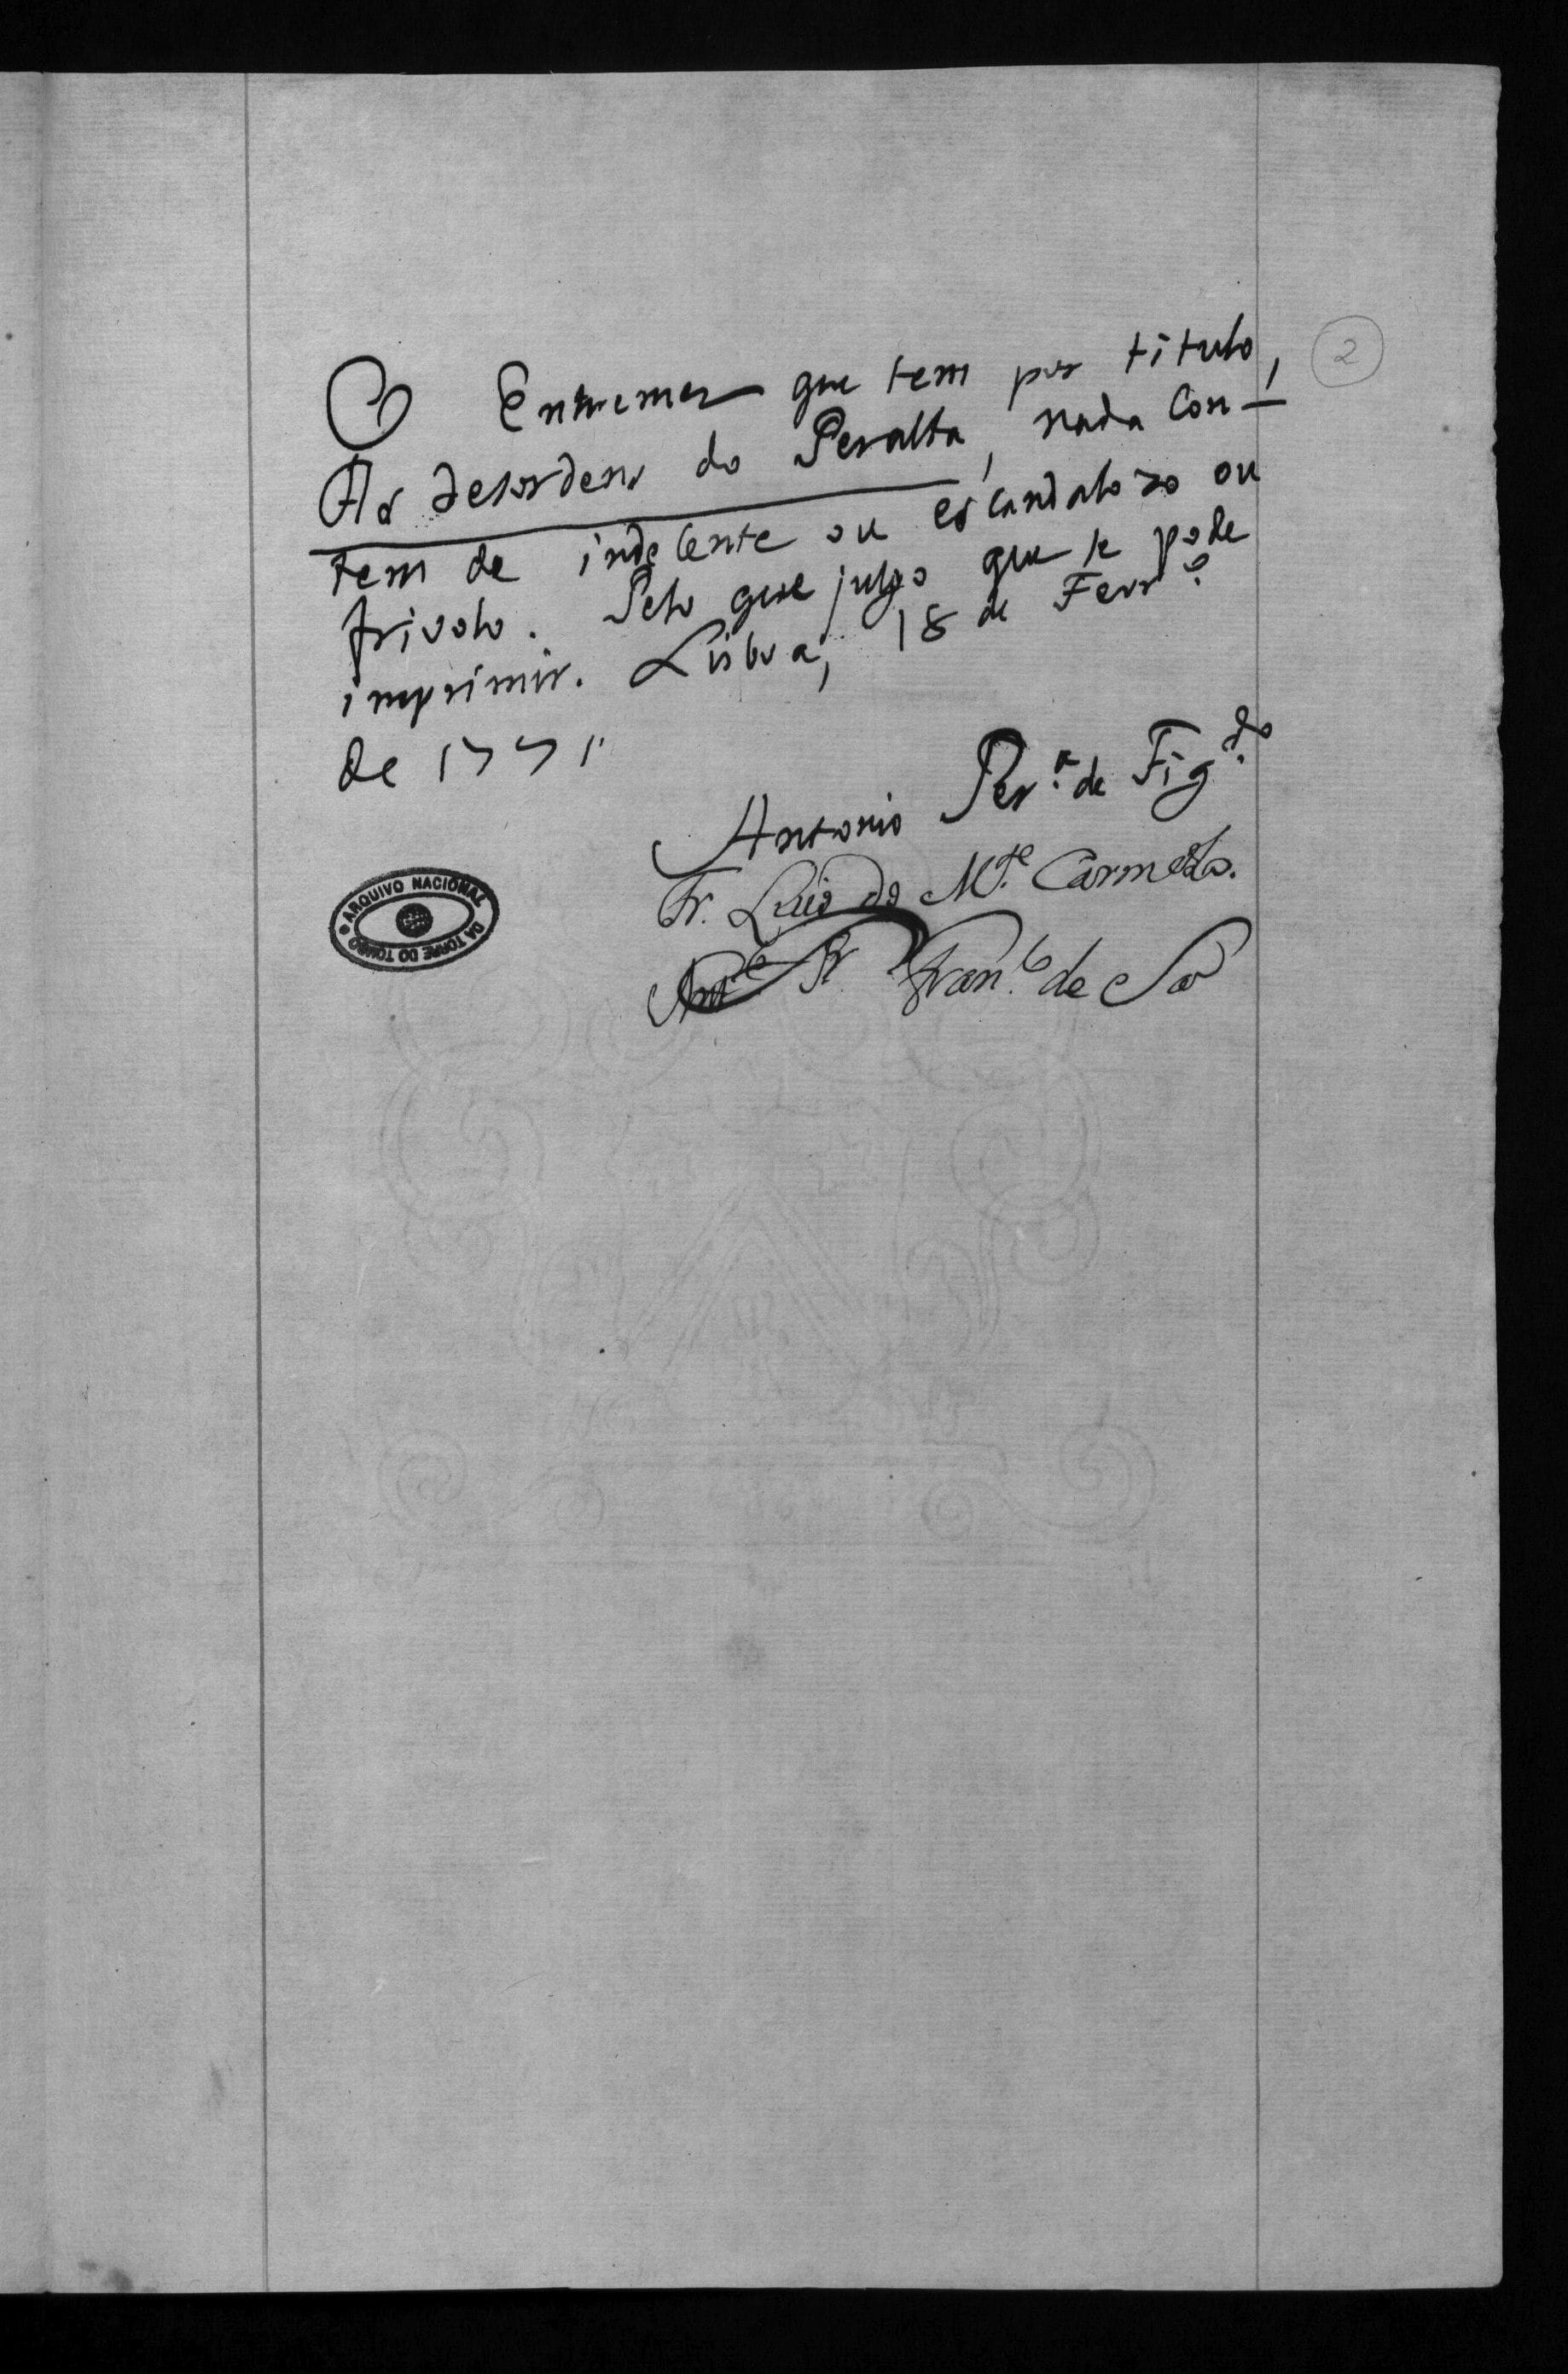 2
O Entremez que tem por titulo,
As desordens do Peralta, nada con-
tem de indecente ou escandalozo ou
frivolo. Pelo que julgo que se pode
imprimir. Lisboa, 18 de Fevr.º
de 1771.
Antonio Per.ª de Fig.do
Fr. Luis do M.te Carmelo.
Fr. Fran.co de Sá
ARQUIVO NACIONAL DA TORRE DO TOMBO